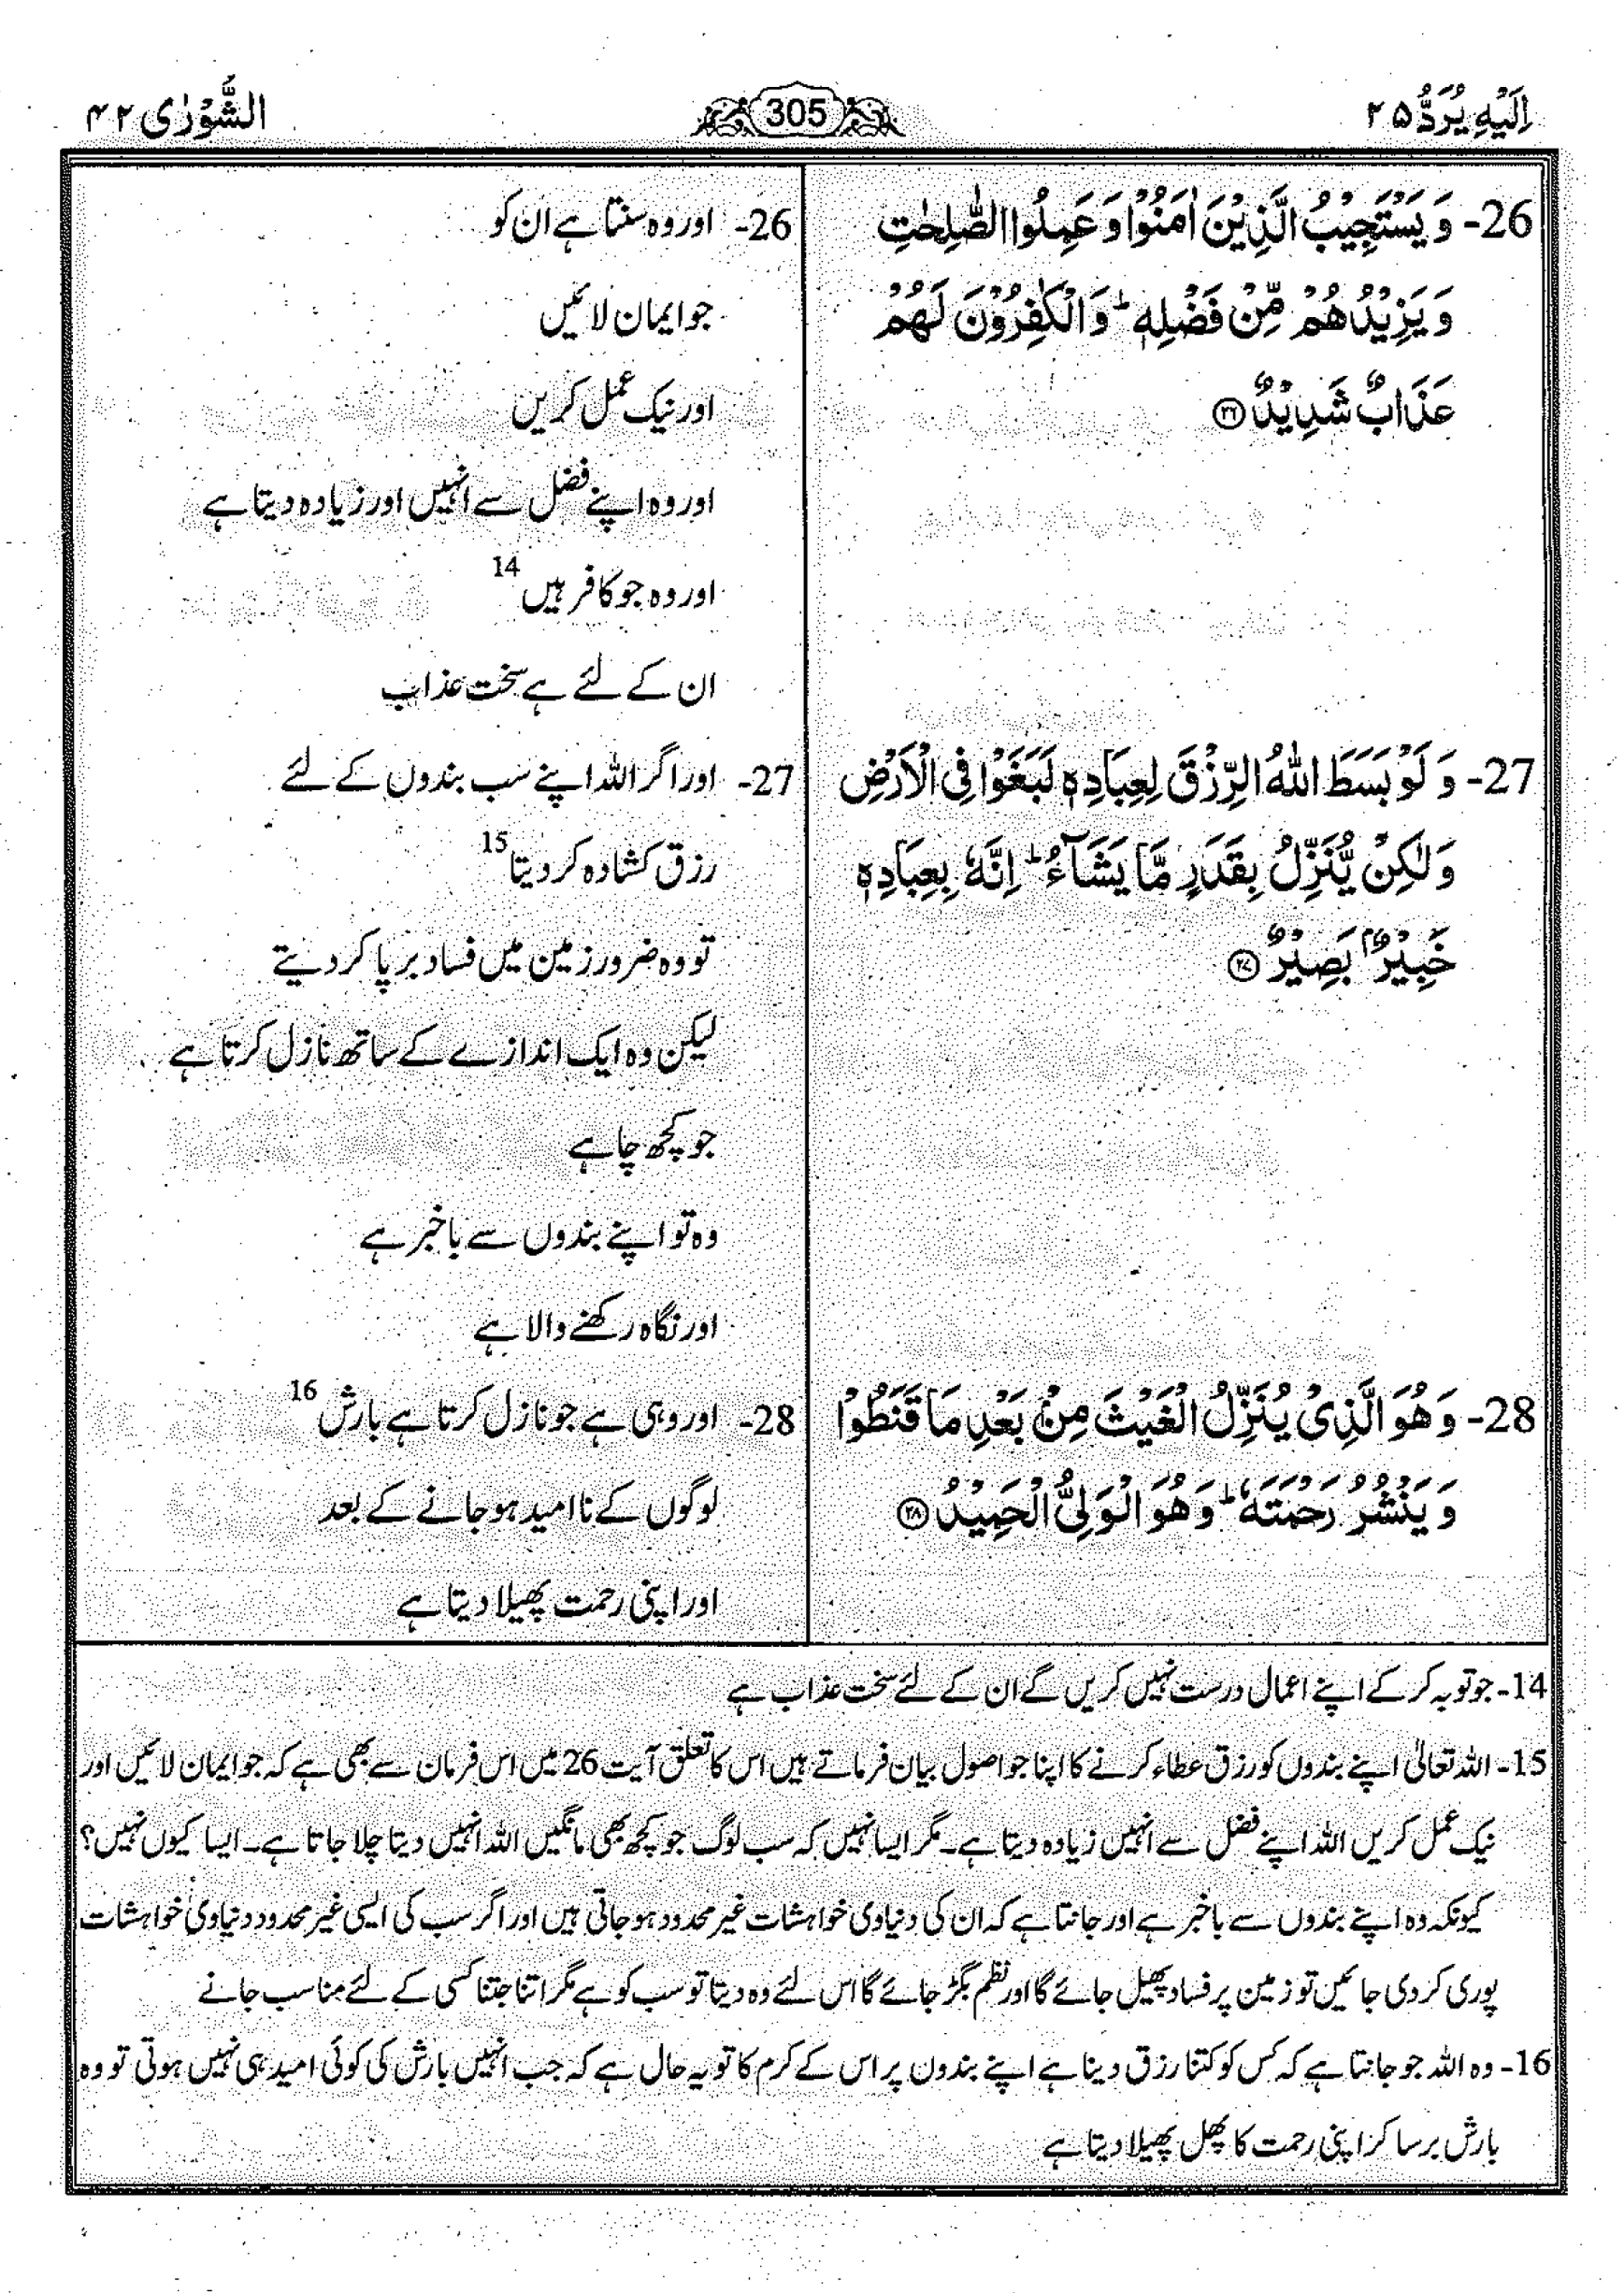 اِلَیْهِ یُرَدُّ ۲۵
305
الشُّوْرٰی ۴۲
26- وَ یَسْتَجِیْبُ الَّذِیْنَ اٰمَنُوْا وَ عَمِلُوا الصّٰلِحٰتِ
وَ یَزِیْدُهُمْ مِّنْ فَضْلِهٖ ؕ وَ الْكٰفِرُوْنَ لَهُمْ
عَذَابٌ شَدِیْدٌ ﴿۲۶﴾
27- وَ لَوْ بَسَطَ اللّٰهُ الرِّزْقَ لِعِبَادِهٖ لَبَغَوْا فِی الْاَرْضِ
وَلٰكِنْ یُّنَزِّلُ بِقَدَرٍ مَّا یَشَآءُ ؕ اِنَّهٗ بِعِبَادِهٖ
خَبِیْرٌۢ بَصِیْرٌ ﴿۲۷﴾
28- وَ هُوَ الَّذِیْ یُنَزِّلُ الْغَیْثَ مِنْۢ بَعْدِ مَا قَنَطُوْا
وَ یَنْشُرُ رَحْمَتَهٗ ؕ وَ هُوَ الْوَلِیُّ الْحَمِیْدُ ﴿۲۸﴾
26- اور وہ سنتا ہے ان کو
جو ایمان لائیں
اور نیک عمل کریں
اور وہ اپنے فضل سے انہیں اور زیادہ دیتا ہے
اور وہ جو کافر ہیں 14
ان کے لئے ہے سخت عذاب
27- اور اگر اللہ اپنے سب بندوں کے لئے
رزق کشادہ کر دیتا 15
تو وہ ضرور زمین میں فساد برپا کر دیتے
لیکن وہ ایک اندازے کے ساتھ نازل کرتا ہے
جو کچھ چاہے
وہ تو اپنے بندوں سے باخبر ہے
اور نگاہ رکھنے والا ہے
28- اور وہی ہے جو نازل کرتا ہے بارش 16
لوگوں کے ناامید ہو جانے کے بعد
اور اپنی رحمت پھیلا دیتا ہے
14- جو توبہ کر کے اپنے اعمال درست نہیں کریں گے ان کے لئے سخت عذاب ہے
15- اللہ تعالیٰ اپنے بندوں کو رزق عطاء کرنے کا اپنا جو اصول بیان فرماتے ہیں اس کا تعلق آیت 26 میں اس فرمان سے بھی ہے کہ جو ایمان لائیں اور
نیک عمل کریں اللہ اپنے فضل سے انہیں زیادہ دیتا ہے۔ مگر ایسا نہیں کہ سب لوگ جو کچھ بھی مانگیں اللہ انہیں دیتا چلا جاتا ہے۔ ایسا کیوں نہیں؟
کیونکہ وہ اپنے بندوں سے باخبر ہے اور جانتا ہے کہ ان کی دنیاوی خواہشات غیر محدود ہو جاتی ہیں اور اگر سب کی ایسی غیر محدود دنیاوی خواہشات
پوری کر دی جائیں تو زمین پر فساد پھیل جائے گا اور نظم بگڑ جائے گا اس لئے وہ دیتا تو سب کو ہے مگر اتنا جتنا کسی کے لئے مناسب جانے
16- وہ اللہ جو جانتا ہے کہ کس کو کتنا رزق دینا ہے اپنے بندون پر اس کے کرم کا تو یہ حال ہے کہ جب انہیں بارش کی کوئی امید ہی نہیں ہوتی تو وہ
بارش برسا کر اپنی رحمت کا پھل پھیلا دیتا ہے